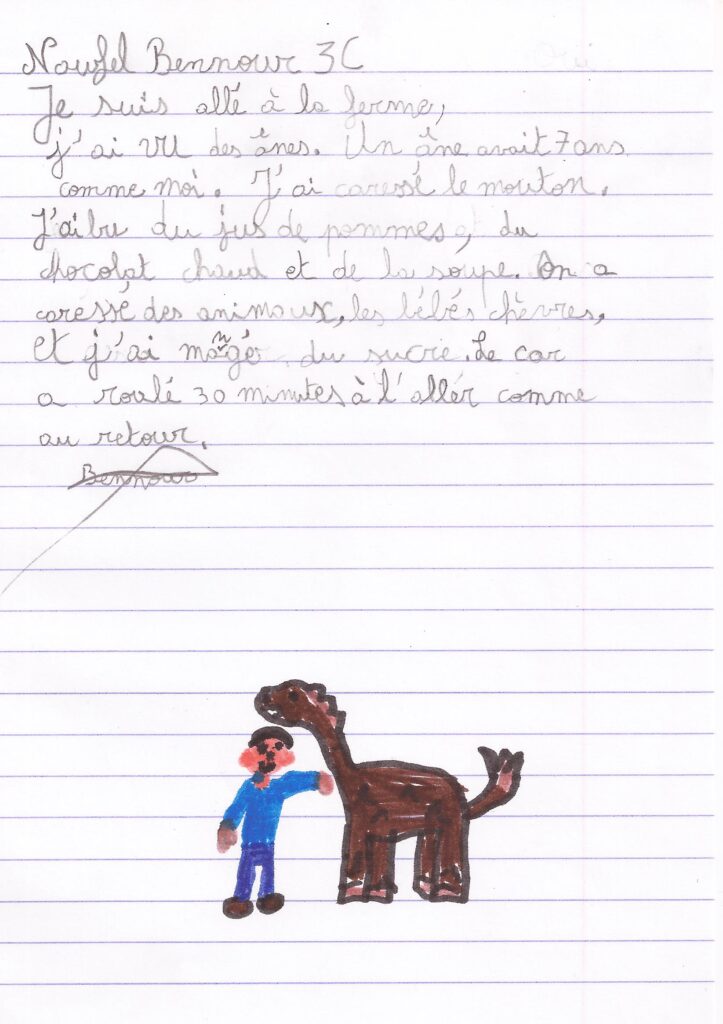 Noufel Bennour 3C
Je suis allé à la ferme,
j'ai vu des ânes. Un âne avait 7 ans
comme moi. J'ai caressé le mouton.
J'ai bu du jus de pommes, du
chocolat chaud et de la soupe. On a
caressé des animaux, les bébés chèvres,
et j'ai mangé du sucre. Le car
a roulé 30 minutes à l'aller comme
au retour.
Bennour